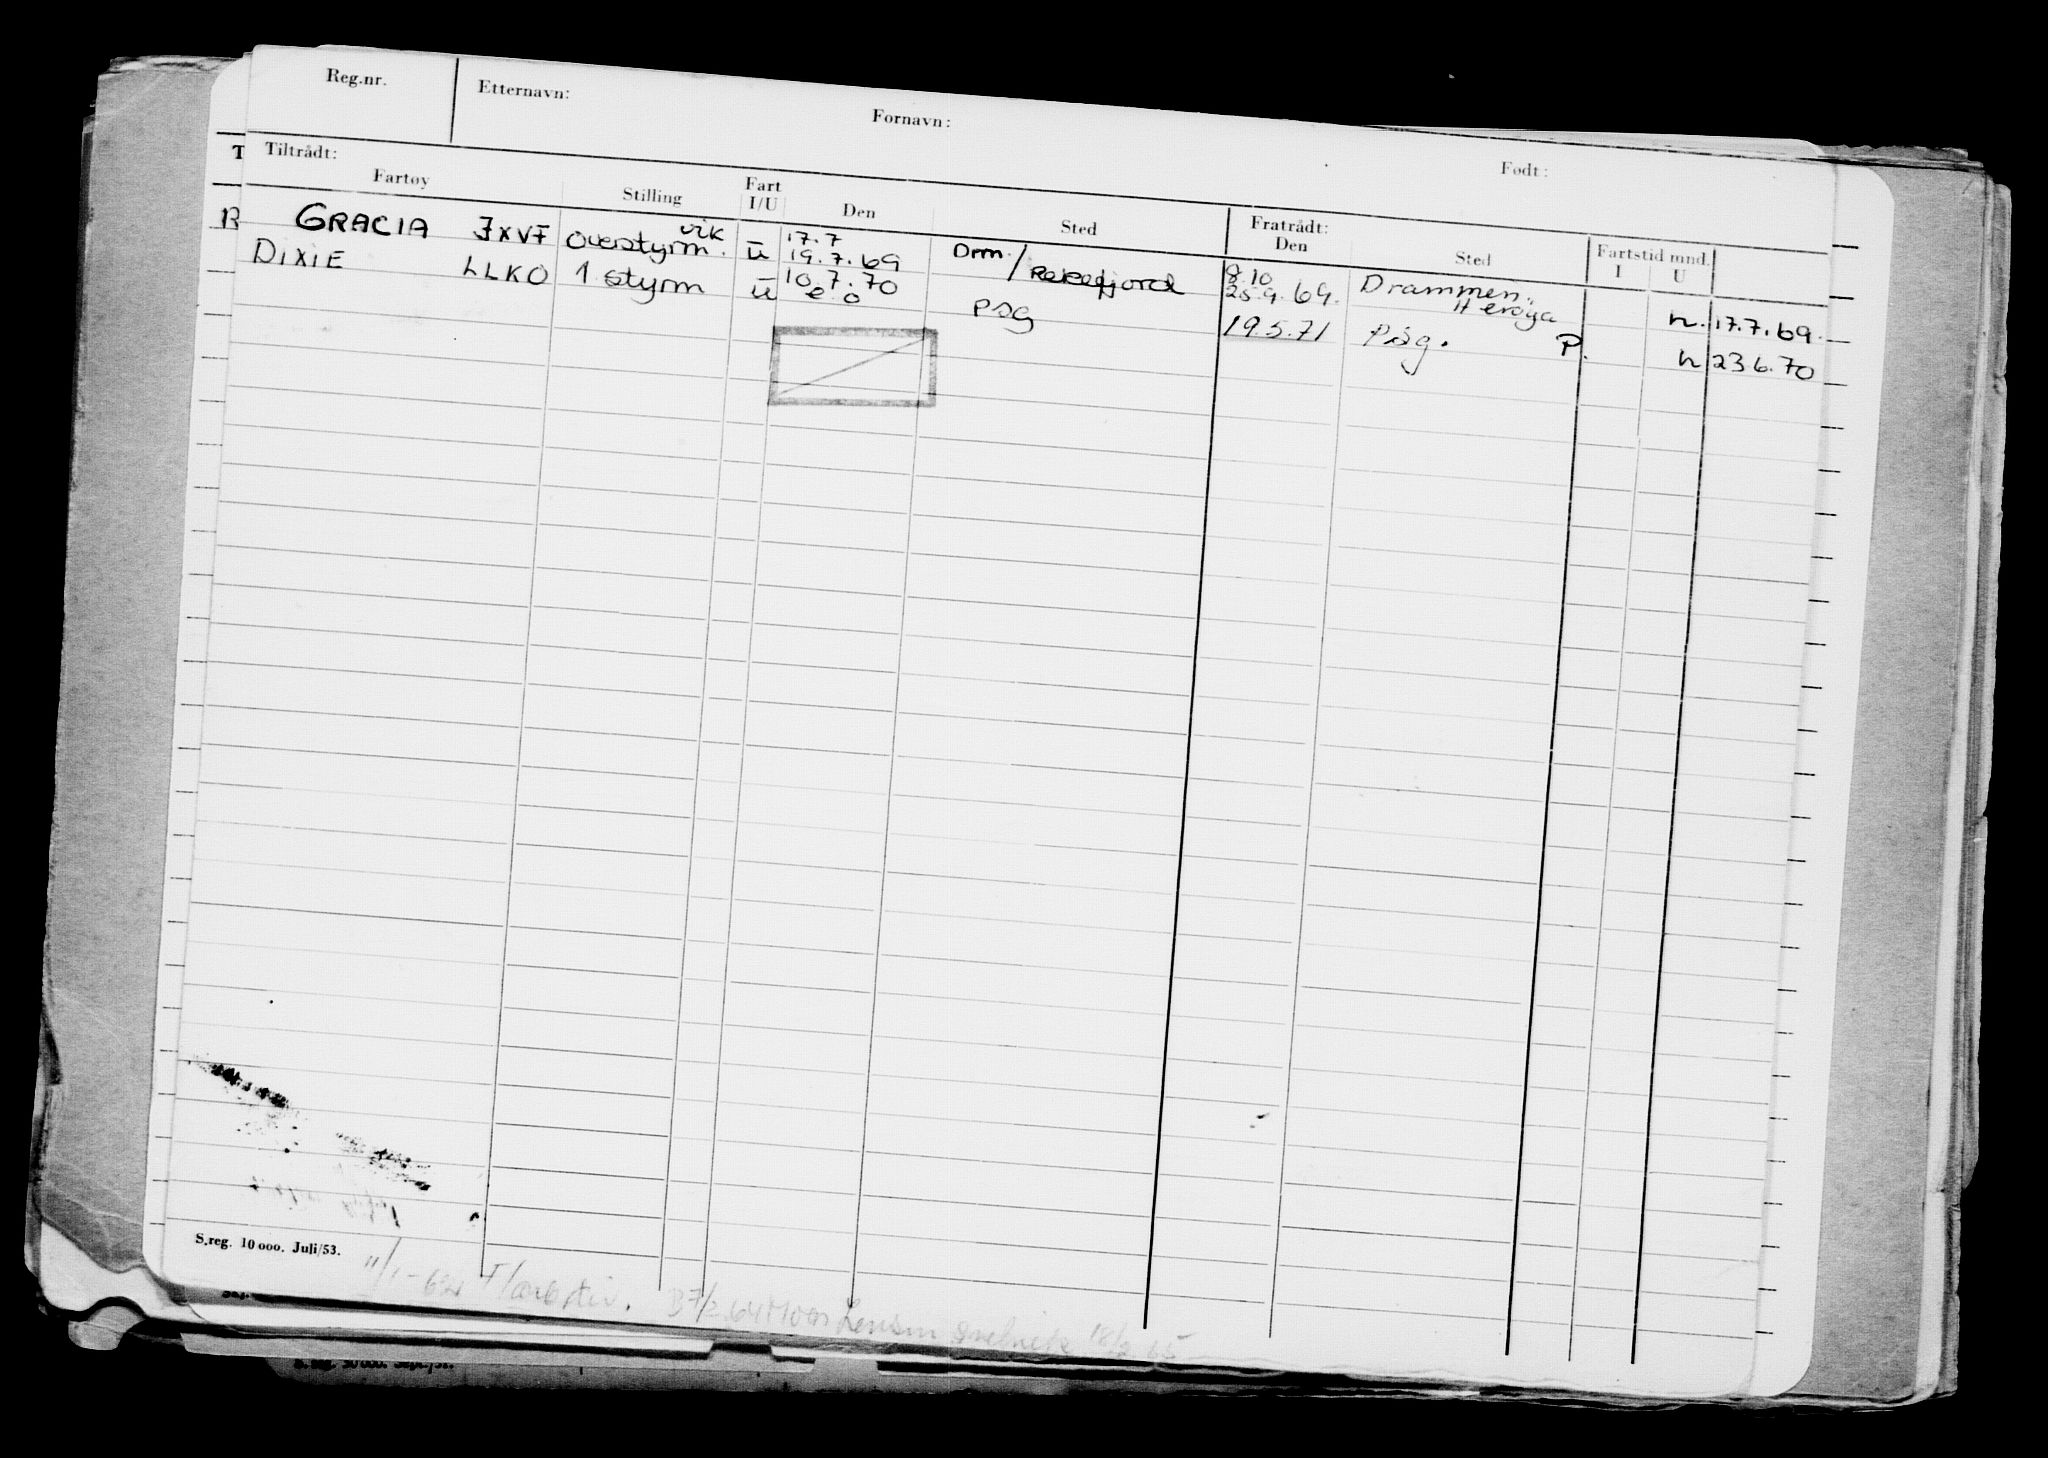 Reg.nr. Etternavn: Fornavn: Født:
Tiltrådt: Fratrådt: Fartstid mnd.
Fartøy Stilling Fart I/U Den Sted Den Sted I U
GRACIA JXVF Overstyrm. vik ū 17.7 19.7.69 Drm. / Rekefjord 8.10 25.9.69. Drammen. Herøya n. 17.7.69.
DIXIE LLKO 1 styrm ū 10.7.70 e o PSG 19.5.71 Psg. P. n 23 6.70
S.reg. 10 000. Juli/53.